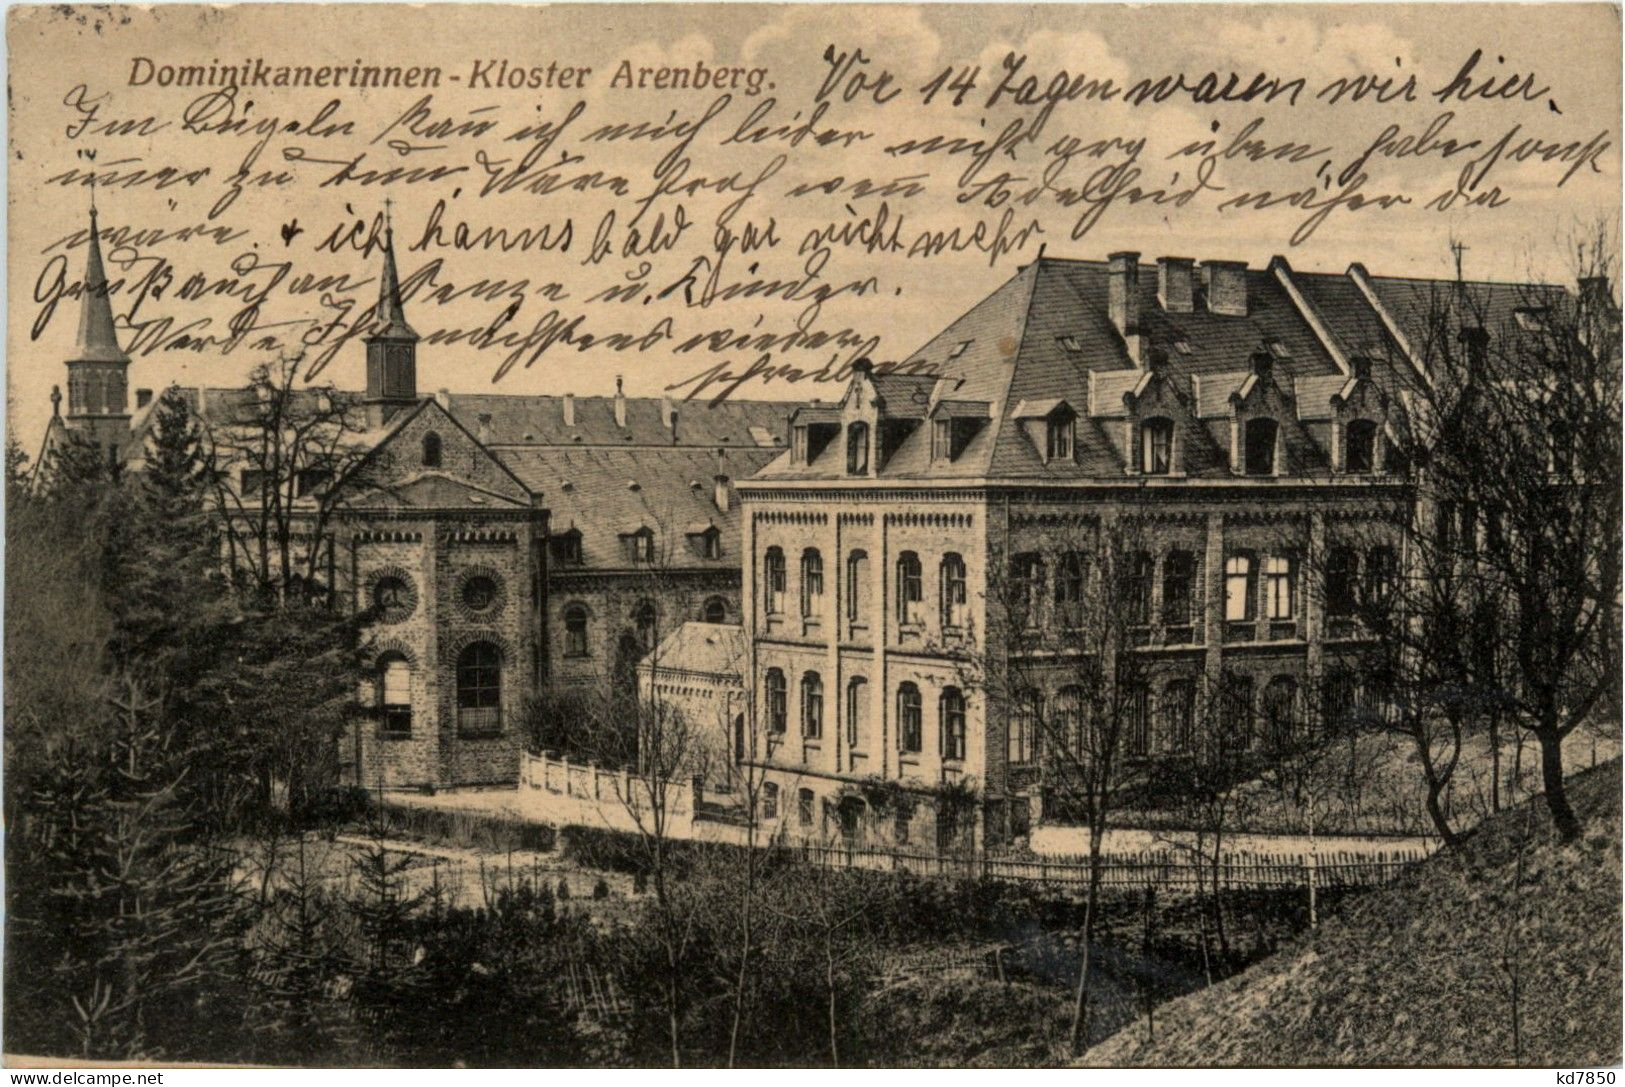 Dominikanerinnen-Kloster Arenberg. Vor 14 Tagen waren wir hier.
Im Bügeln kan̄ ich mich leider nicht arg üben, habe sonst
im̄er zu tun. Wäre froh wen̄ Adelheid näher da
wäre. + ich kanns bald gar nicht mehr
Gruß auch an u. Kinder.
Werde Ihr nächstens wieder
schreiben.
kd7850